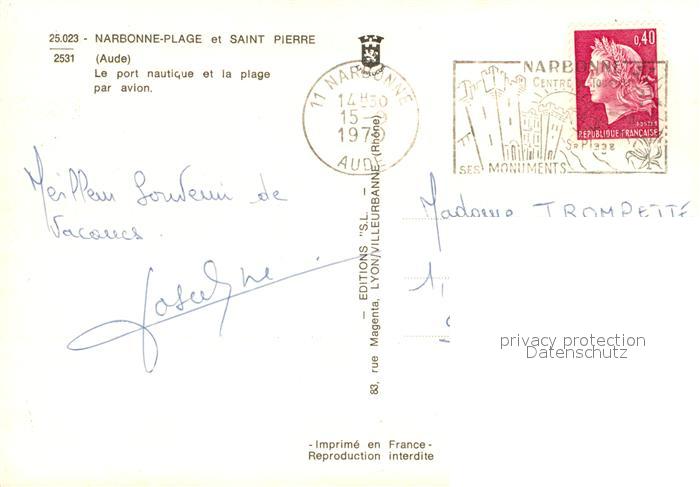 25.023 - NARBONNE-PLAGE et SAINT PIERRE
2531 (Aude)
Le port nautique et la plage
par avion.
11 NARBONNE
14H30
15-
1970
AUDE
NARBONNE
CENTRE
SES MONUMENTS
0,40
POSTES
REPUBLIQUE FRANÇAISE
Meilleur Souvenir de
Vacances.
Madame TROMPETTE
1,
- EDITIONS "S.L." -
83, rue Magenta, LYON/VILLEURBANNE (Rhône)
privacy protection
Datenschutz
- Imprimé en France -
Reproduction interdite